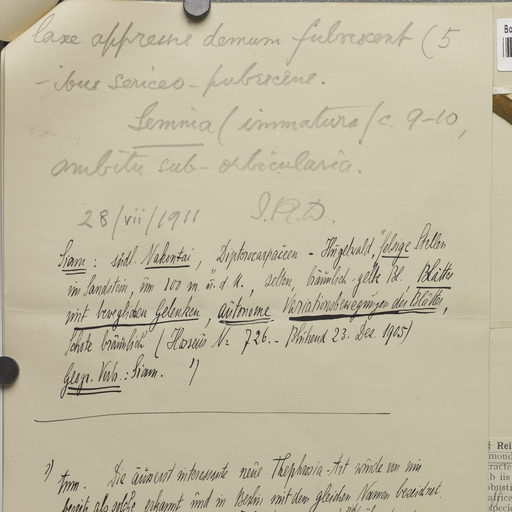 laxe appresse demum fulvescent (5
-ibus sericeo-pubescens.
Semina (immatura) c. 9-10,
ambitu sub-orbicularia.
28/vii/1911 J.R.D.
Siam: südl. Nakontai, Dipterocarpaceen-Hügelwald, felsige Stellen
im Sandstein, um 100 m ü. d. M., selten, bräunlich-gelbe Bl. Blätter
mit beweglichen Gelenken, autonome Variationsbewegungen der Blätter,
Schote bräunlich (Hosseus No 726. - Blühend 23. Dez. 1905)
Geogr. Verb.: Siam. 1)
1)
Anm. Die äusserst interessante neue Thephrosia-Art wurde von mir
bereits als solche erkannt und in Berlin mit dem gleichen Namen bezeichnet.
Bo
§ Rei
mond
racte
b iis
bustio
africe
specie